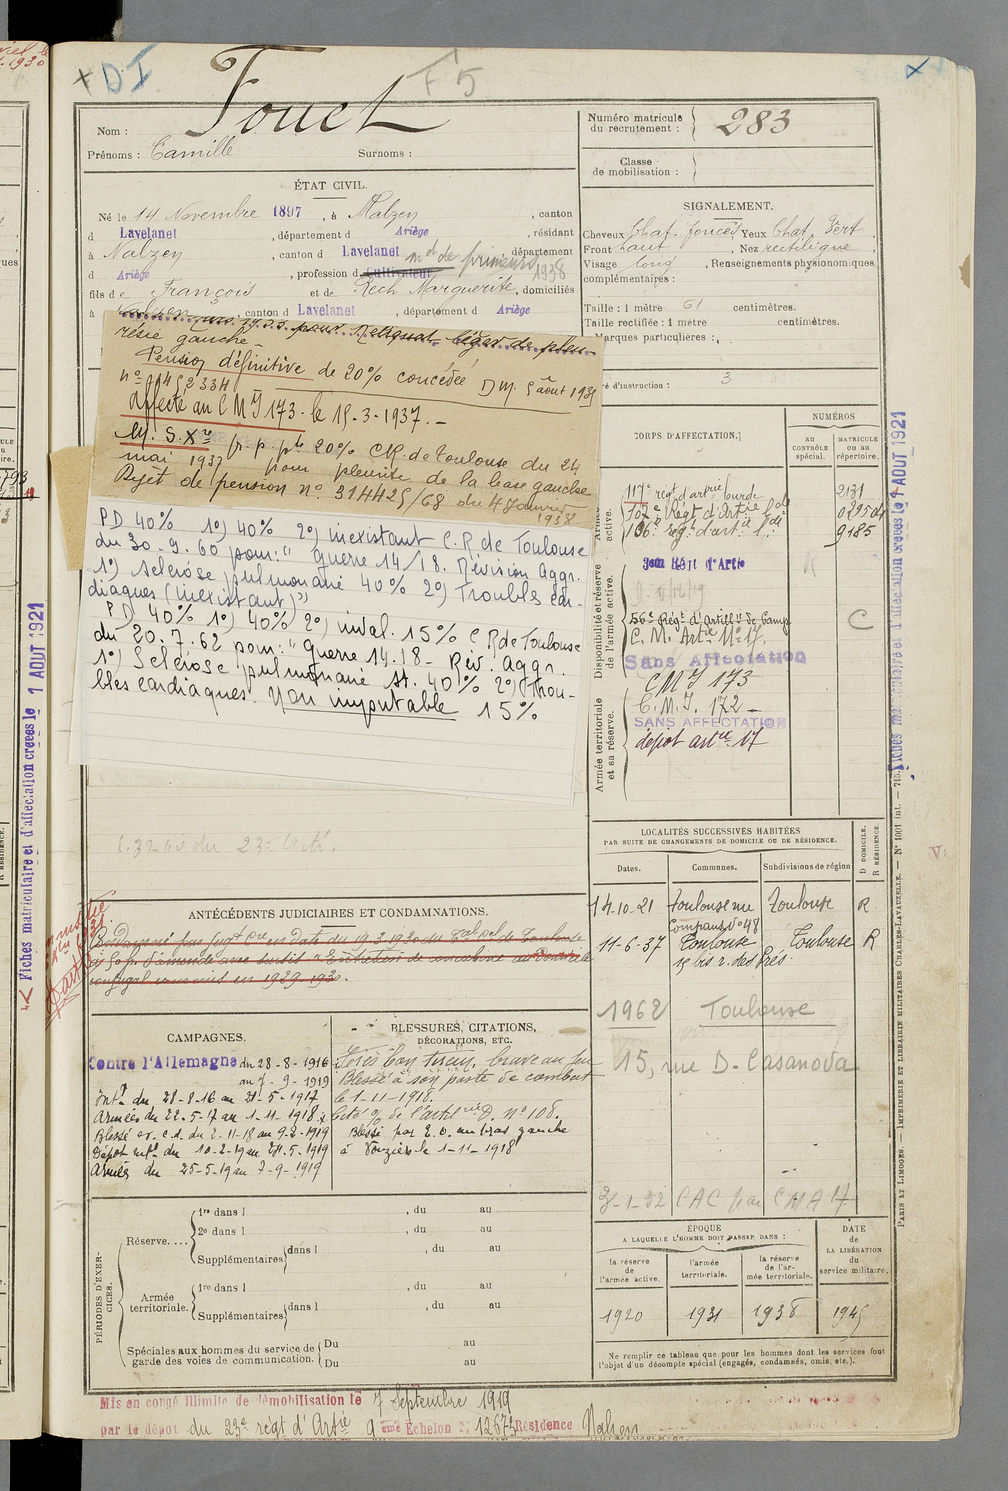 D I
F 5
Nom : Fouet
Prénoms : Camille Surnoms :
Numéro matricule du recrutement : 283
Classe de mobilisation :
ÉTAT CIVIL.
Né le 14 Novembre 1897, à Nalzen, canton
d Lavelanet, département d Ariège, résidant
à Nalzen, canton d Lavelanet, département
d Ariège, profession d Cultivateur md de primeurs 1938
fils de François et de Rech Marguerite, domiciliés
à Nalzen, canton d Lavelanet, département d Ariège
SIGNALEMENT.
Cheveux Chat. foncés Yeux Chat. Vert.
Front haut, Nez rectiligne
Visage long, Renseignements physionomiques
complémentaires :
Taille : 1 mètre 61 centimètres.
Taille rectifiée : 1 mètre centimètres.
Marques particulières :
ré d'instruction : 3
pour reliquat léger de pleu-
résie gauche -
Pension définitive de 20% concédée D M. 5 août 1935
n° 1452334
Affecté au C M I 173. le 15-3-1937. -
p. p. pte 20% CR. de Toulouse du 24
mai 1937 pour pleurite de la base gauche
Rejet de pension n° 314425/68 du 4 Janvier
1938
PD 40% 1°) 40% 2°) inexistant C.R de Toulouse
du 30-9.60 pour: " Guerre 14/18. Révision Aggr.
1°) Sclérose pulmonaire 40% 2°) Troubles car-
diaques (inexistant)")
PD 40% 1°) 40% 2°) inval. 15% C R de Toulouse
du 20.7.62 pour: " Guerre 14.18 - Rév. Aggr.
1°) Sclérose pulmonaire st. 40% 2°) Trou-
bles cardiaques. Non imputable 15%
CORPS D'AFFECTATION.
NUMÉROS
AU CONTRÔLE spécial.
MATRICULE OU AU répertoire.
Armée active.
117e régt d'artrie lourde 2131
107e Régt d'Artie Lde
136e régt d'artie Lde 9185
Disponibilité et réserve de l'armée active.
56e Régt d'Artillie de Camp
C. M. Artie N° 17.
Sans Affectation
C
Armée territoriale et sa réserve.
CMI 173
C.M.I. 172 -
SANS AFFECTATION
dépôt artie 17
Fiches matriculaire et d'affectation créées le 1 AOUT 1921
Fiches matriculaire et d'affectation créées le 1 AOUT 1921
LOCALITÉS SUCCESSIVES HABITÉES
PAR SUITE DE CHANGEMENTS DE DOMICILE OU DE RÉSIDENCE.
Dates. Communes. Subdivisions de région D DOMICILE. R RÉSIDENCE.
14.10-21 Toulouse rue Toulouse R
Compans n° 98
11-6-37 Toulouse Toulouse R
15 bis r. des Prés.
1962 Toulouse
15, rue D. Casanova
ANTÉCÉDENTS JUDICIAIRES ET CONDAMNATIONS.
Condamné par Jugt en date du 19-3-1930 du Tal de Toulouse
à 50 fr. d'amende avec sursis "Entretien de concubine au Domicile
conjugal commis en 1929-1930.
CAMPAGNES.
Contre l'Allemagne du 28-8-1916
au 7-9-1919
Intr du 28-8-16 au 21-5-1917
Armées du 22.5-17 au 1-11-1918
Blessé ev. c.d. du 2-11-18 au 9-2-1919
Dépôt intr du 10-2-19 au 24-5-1919
Armées du 25-5-19 au 7-9-1919
BLESSURES, CITATIONS,
DÉCORATIONS, ETC.
Très bon tireur, brave au feu
Blessé à son poste de combat
le 1-11-1918.
Cité
Blessé par E. O. au bras gauche
à Vouziers le 1-11-1918
3-1-52 CAC CMA 17.
PÉRIODES D'EXERCICES.
Réserve....
1re dans l , du au
2e dans l , du au
Supplémentaires dans l , du au
Armée territoriale.
1re dans l , du au
Supplémentaires dans l , du au
Spéciales aux hommes du service de garde des voies de communication.
Du au
Du au
ÉPOQUE
A LAQUELLE L'HOMME DOIT PASSER DANS :
la réserve de l'armée active.
l'armée territoriale.
la réserve de l'armée territoriale.
DATE DE LA LIBÉRATION du service militaire.
1920 1931 1938 1945
Ne remplir ce tableau que pour les hommes dont les services font
l'objet d'un décompte spécial (engagés, condamnés, omis, etc.).
PARIS ET LIMOGES. — IMPRIMERIE ET LIBRAIRIE MILITAIRES CHARLES-LAVAUZELLE. — N° 1001 int. —
Mis en congé illimité de démobilisation le 7 Septembre 1919
par le dépôt du 23e régt d'Artie 9 ème Echelon N. 12675 Résidence Nalzen